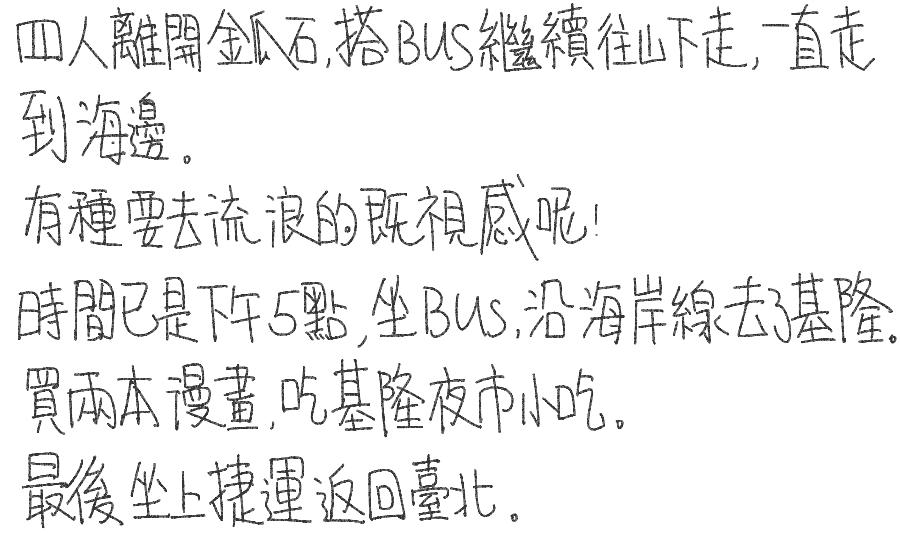 四人離開金瓜石,搭BUS繼續往山下走,一直走
到海邊。
有種要去流浪的既視感呢!
時間已是下午5點,坐BUS,沿海岸線去了基隆。
買兩本漫畫,吃基隆夜市小吃。
最後坐上捷運返回臺北。